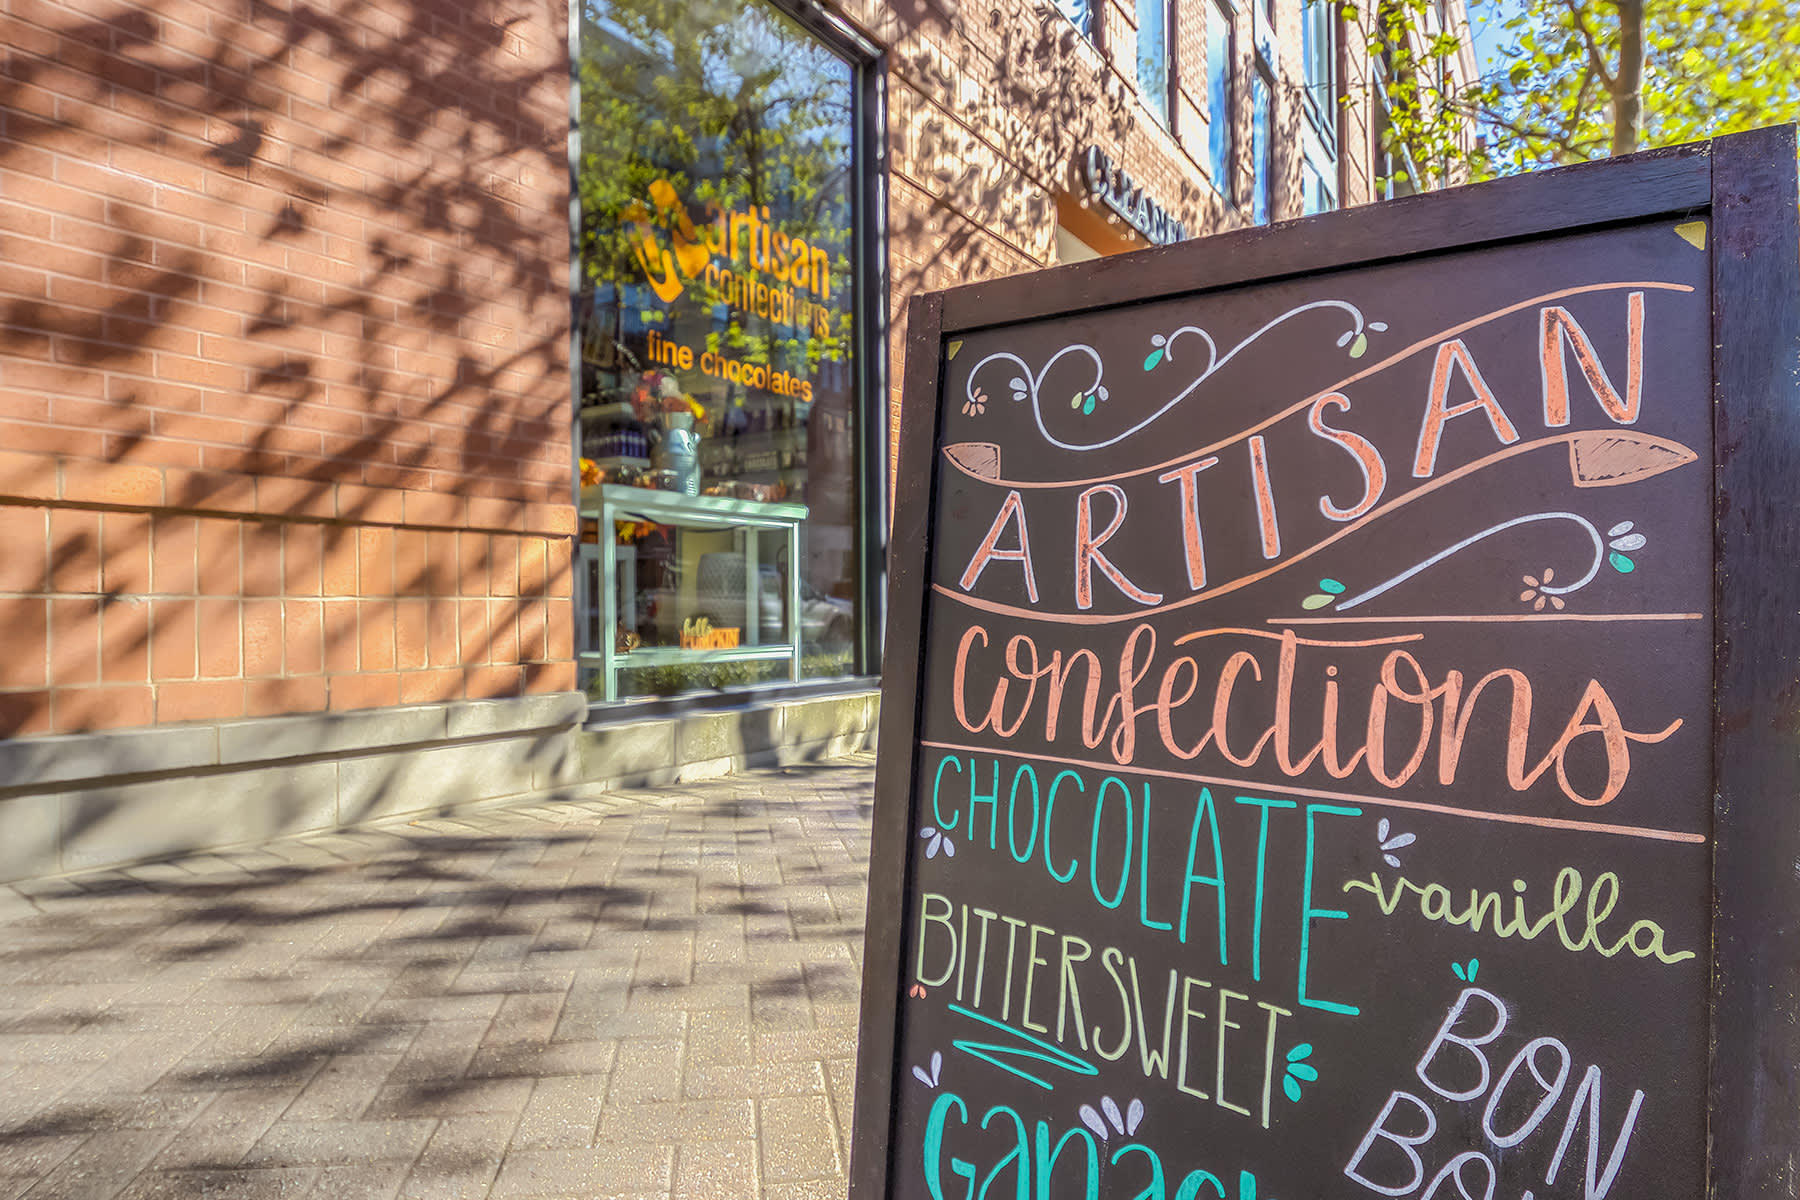 artisan
confections
fine chocolates
hello
PUMPKIN
ARTISAN
confections
CHOCOLATE
vanilla
BITTERSWEET
BON